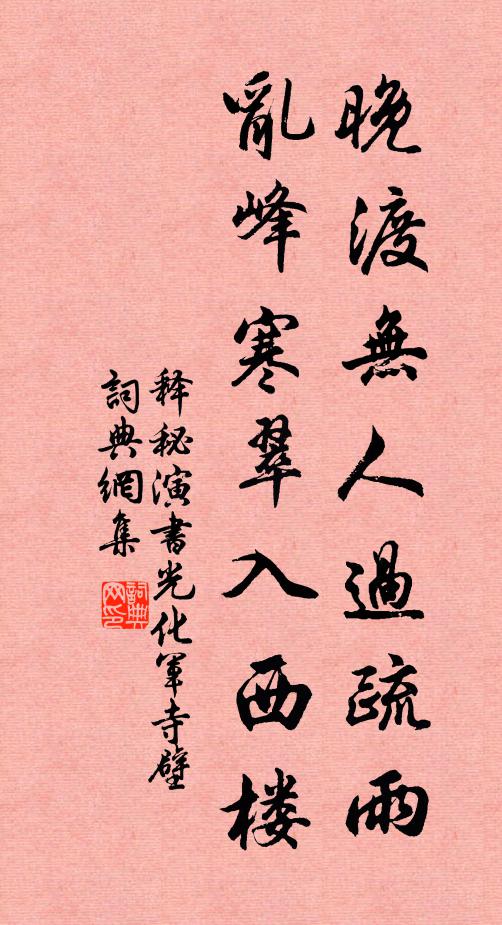 晚渡無人過疏雨
亂峰寒翠入西楼
释秘演書光化軍寺壁
詞典網集
詞典网印